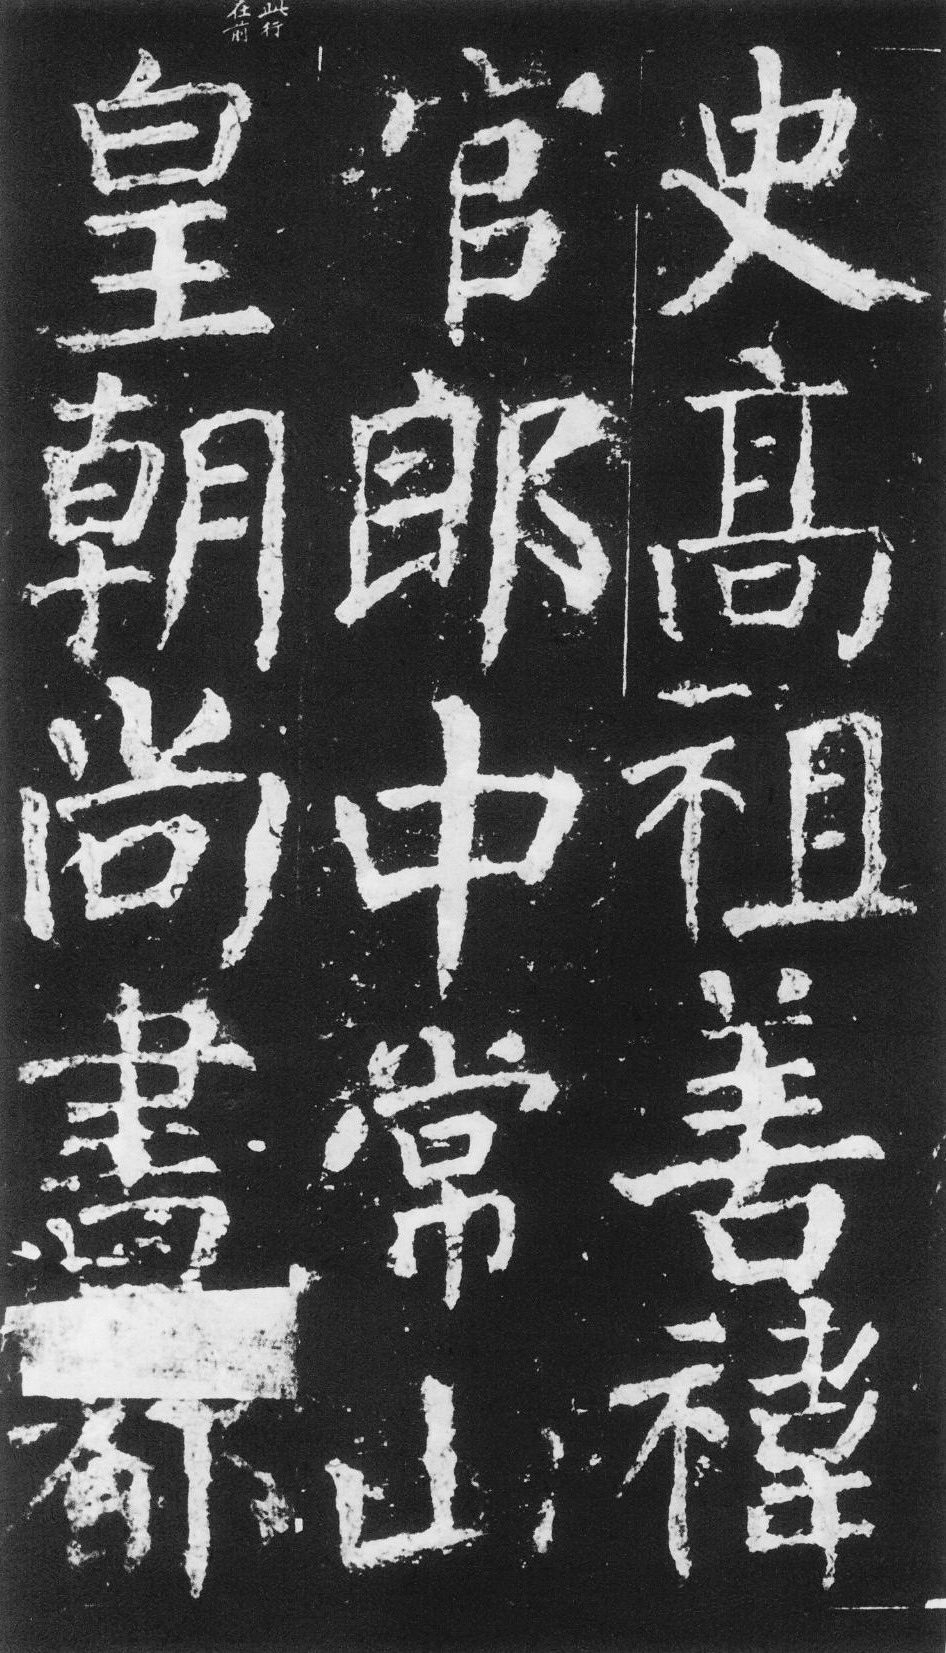 史高祖善禕
官郎中常山
此行
在前
皇朝尚書都